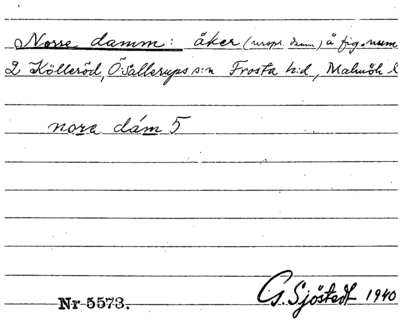 Norre damm: åker (urspr. damm) å fig. num
2 Kölleröd, Ö. Sallerups s:n Frosta h:d, Malmöh l
nore dám 5
Nr 5573. G. Sjöstedt 1940